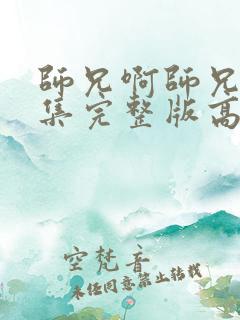 師兄啊師兄
集完整版高
空梵音
未經同意禁止轉載